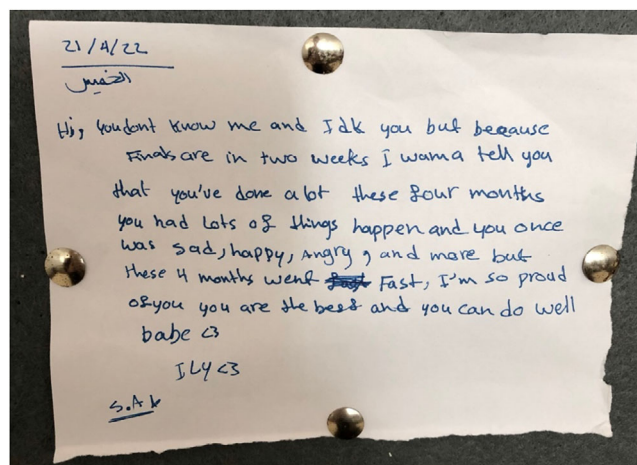 21/4/22
الخميس
Hi, You dont know me and Idk you but because
Finals are in two weeks I wanna tell you
that you've done a lot these four months
you had lots of things happen and you once
was sad, happy, Angry, and more but
these 4 months went Fast, I'm so proud
of you you are the best and you can do well
babe <3
ILY <3
S.A